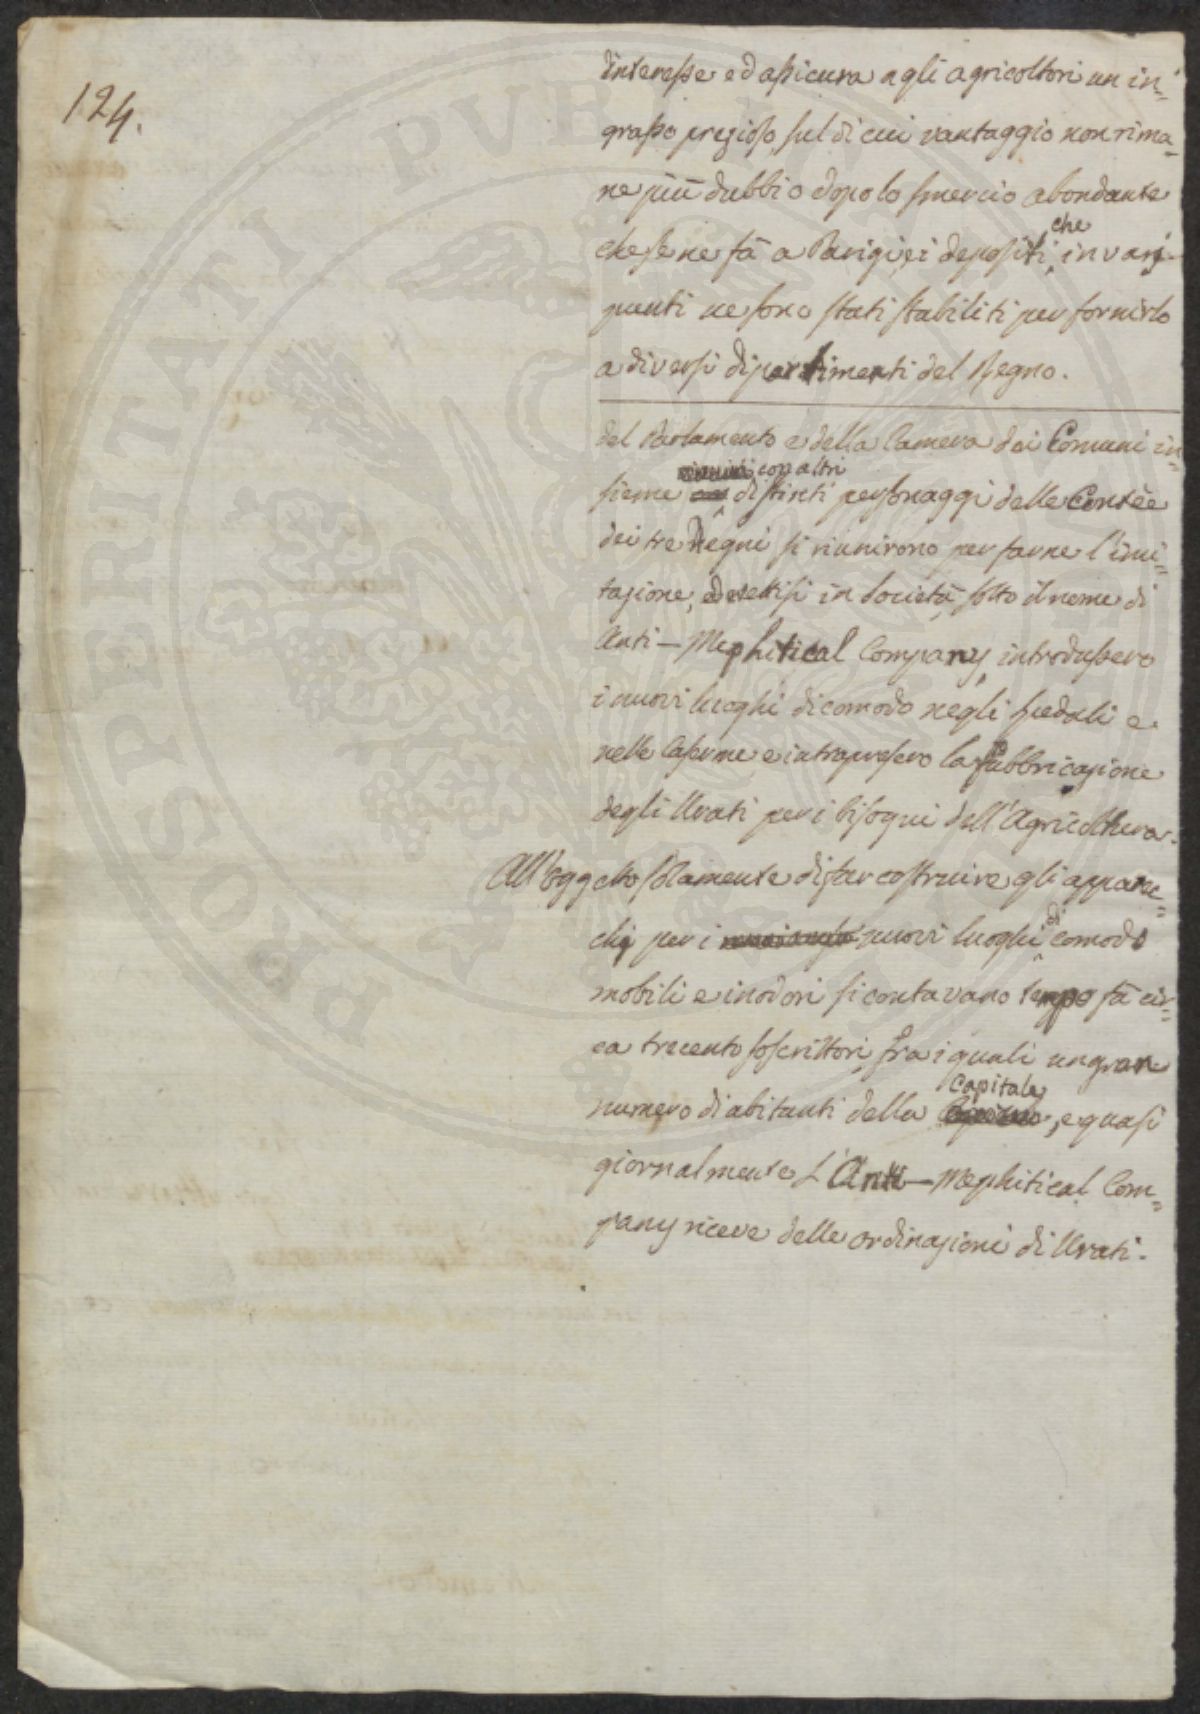 124.
interesse ed assicura agli agricoltori un in=
grasso prezioso, sul di cui vantaggio non rima=
ne più dubbio dopo lo smercio abondante
che se ne fà a Parigi, ei depositi, che in varj
punti ne sono stati stabiliti per fornirlo
a diversi dipartimenti del Regno.
del Parlamento e della Camera dei Comuni in=
sieme con altri distinti personaggi delle Contèe
dei tre Regni si riunirono per farne l'imi=
tazione, ed erettisi in Società sotto il nome di
Anti-Mephitical Company, introdussero
i nuovi luoghi di comodo negli spedali e
nelle Caserme e intrapresero la fabbricazione
degli Urati per i bisogni dell'Agricoltura.
All'oggetto solamente di far costruire gli apparec=
chj per i nuovi luoghi di comodo
mobili e inodori si contavano tempo fà cir=
ca trecento soscrittori, fra i quali un gran
numero di abitanti della Capitale, e quasi
giornalmente l'Anti-Mephitical Com=
pany riceve delle ordinazioni di Urati.
PROSPERITATI PUBLICAE